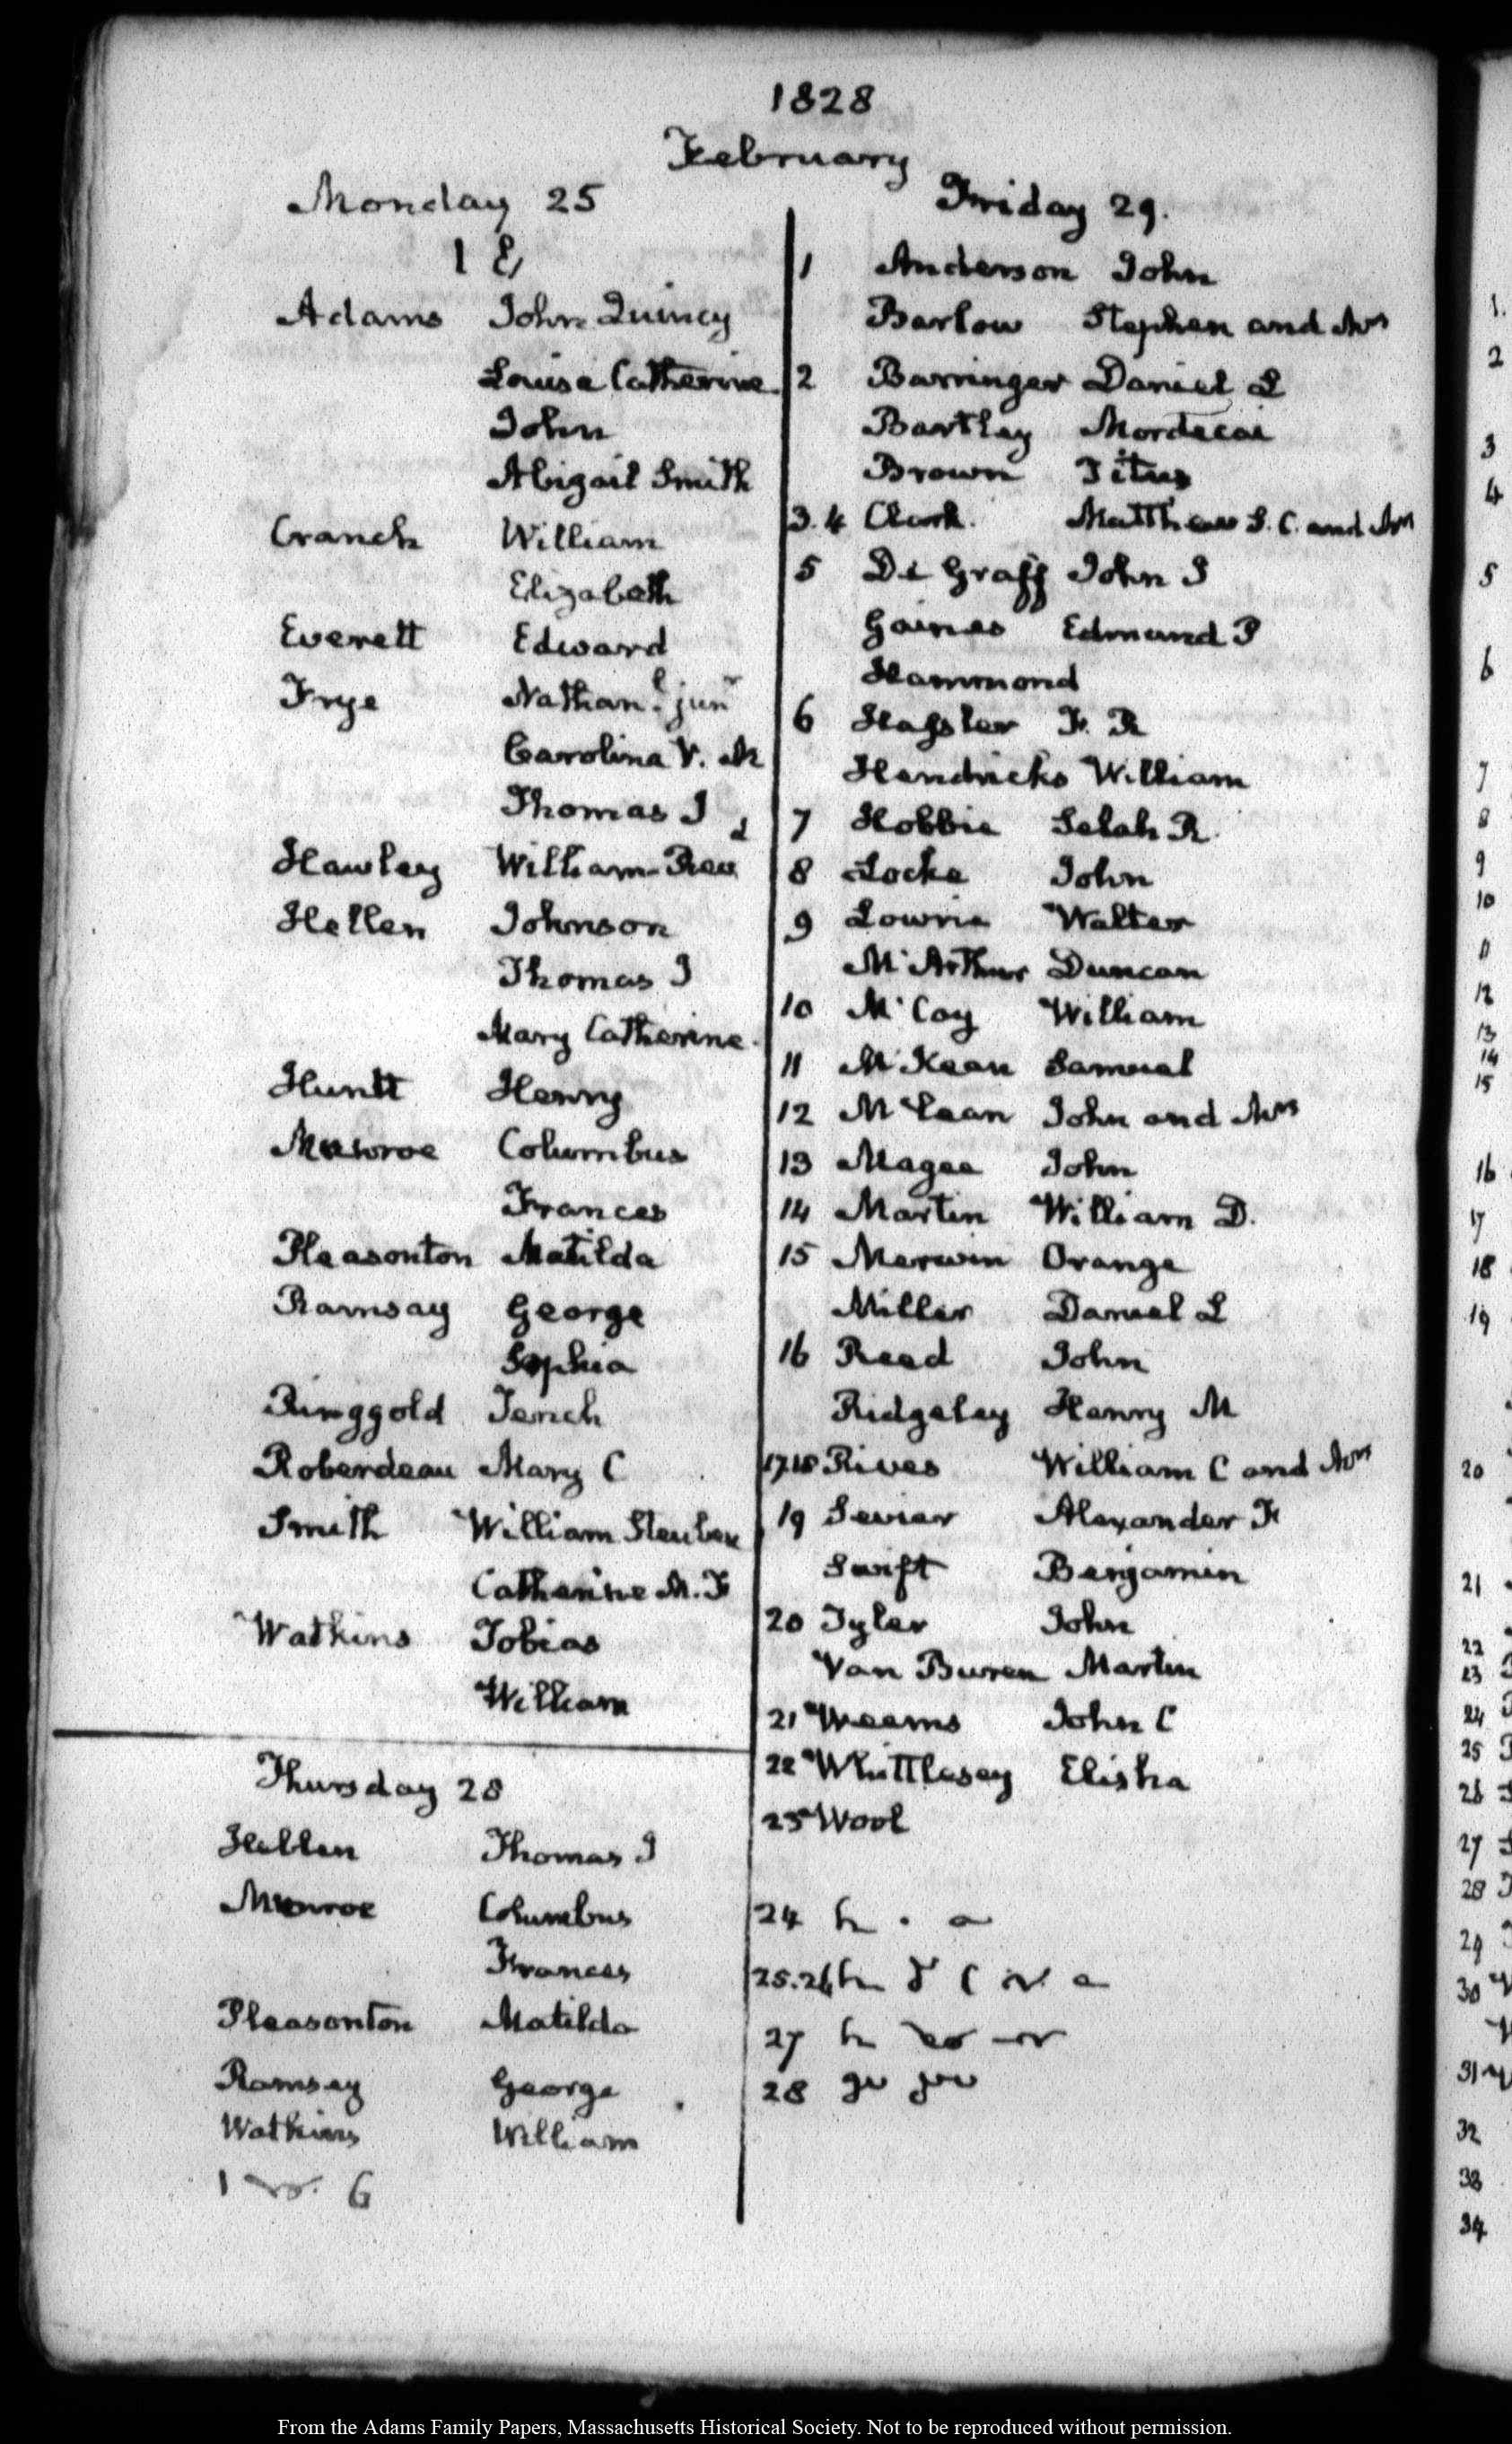 1828
February
Monday 25
1 E
Adams John Quincy
Louisa Catherine
John
Abigail Smith
Cranch William
Elizabeth
Everett Edward
Frye Nathan.l jun.r
Carolina V. M
Thomas J
Hawley William Revd
Hellen Johnson
Thomas J
Mary Catherine
Huntt Henry
Munroe Columbus
Frances
Pleasonton Matilda
Ramsay George
Sophia
Ringgold Tench
Roberdeau Mary C
Smith William Steuben
Catherine M. F
Watkins Tobias
William
Thursday 28
Hellen Thomas J
Munroe Columbus
Frances
Pleasonton Matilda
Ramsay George
Watkins William
1 6
Friday 29.
1 Anderson John
Barlow Stephen and Mrs
2 Barringer Daniel L
Bartley Mordecai
Brown Titus
3.4 Clark. Matthew S. C. and Mrs
5 De Graff John I
Gaines Edmund P
Hammond
6 Hassler F. R
Hendricks William
7 Hobbie Selah R.
8 Locke John
9 Lowrie Walter
McArthur Duncan
10 McCoy William
11 McKean Samuel
12 McLean John and Mrs
13 Magee John
14 Martin William D.
15 Merwin Orange
Miller Daniel L
16 Reed John
Ridgeley Henry M
17.18 Rives William C and Mrs
19 Sevier Alexander F
Swift Benjamin
20 Tyler John
Van Buren Martin
21 Weems John C
22 Whittlesey Elisha
23 Wool
24
25.26
27
28
1.
2
3
4
5
6
7
8
9
10
11
12
13
14
15
16
17
18
19
20
21
22
23
24
25
26
27
28
29
30
31
32
33
34
From the Adams Family Papers, Massachusetts Historical Society. Not to be reproduced without permission.